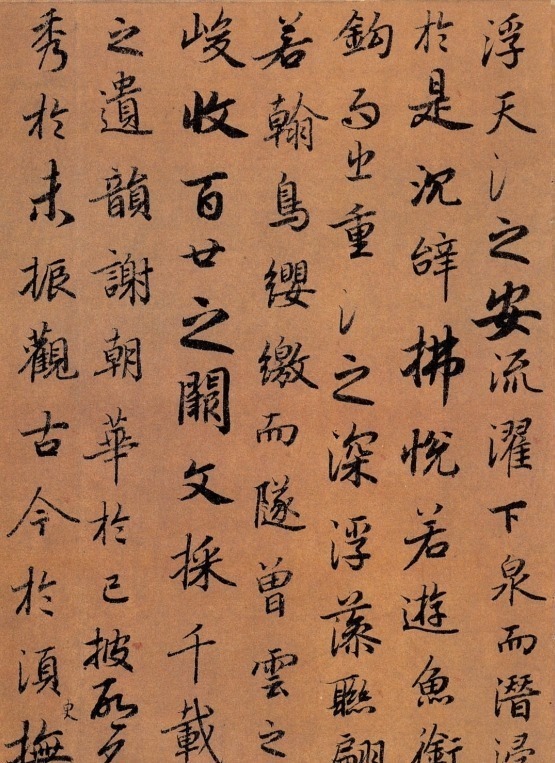 浮天氵之安流濯下泉而潛浸
於是沉辝拂悅若遊魚銜
鈎而出重氵之深浮藻聯翩
若翰鳥纓繳而隧曾雲之
峻收百廿之闕文採千載
之遺韻謝朝華於已披啓夕
秀於未振觀古今於須臾撫